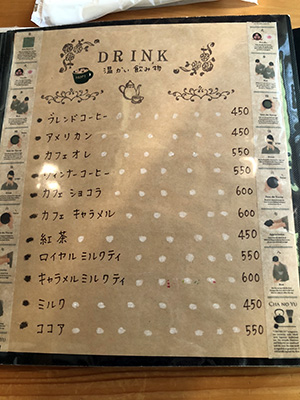 DRINK
温かい飲み物
ブレンドコーヒー 450
アメリカン 450
カフェオレ 550
ウィンナーコーヒー 550
カフェショコラ 600
カフェキャラメル 600
紅茶 450
ロイヤルミルクティ 550
キャラメルミルクティ 600
ミルク 450
ココア 550
CHA NO YU